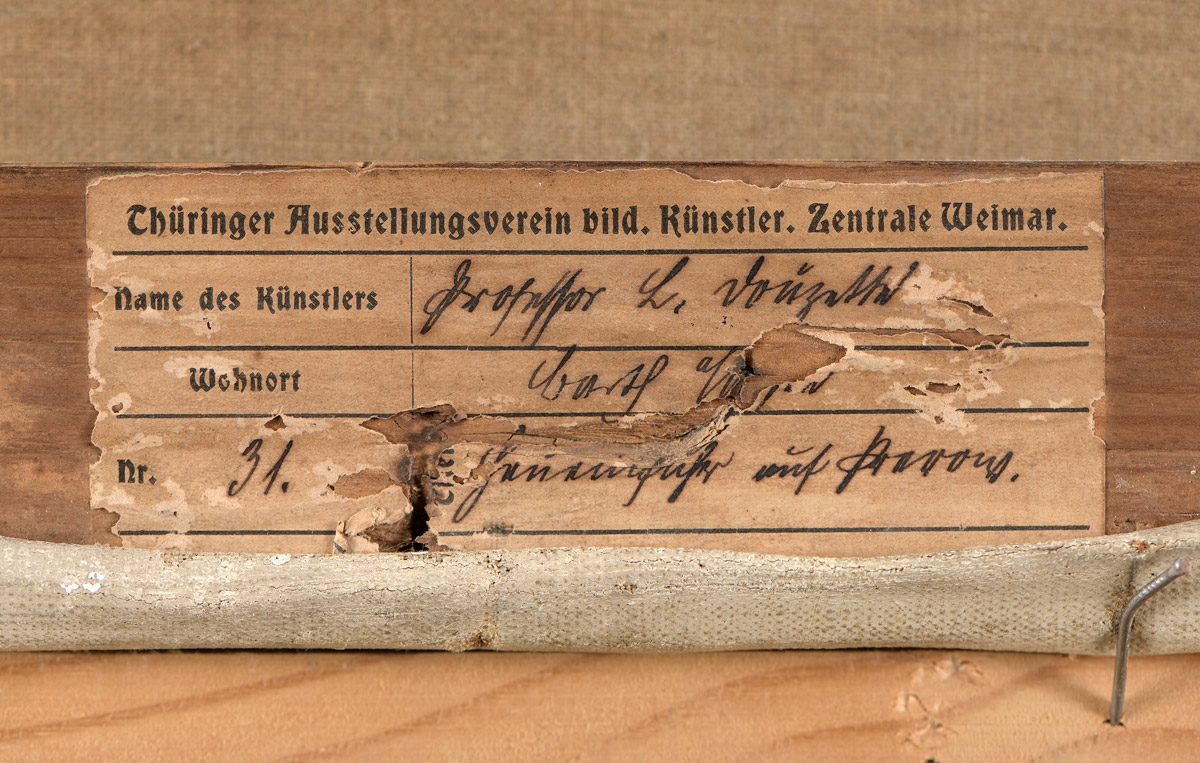 Thüringer Ausstellungsverein bild. Künstler. Zentrale Weimar.
Name des Künstlers Professor L. Douzette
Wohnort Barth
Nr. 31. auf Prerow.